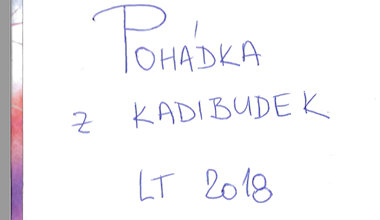 POHÁDKA
z KADIBUDEK
LT 2018